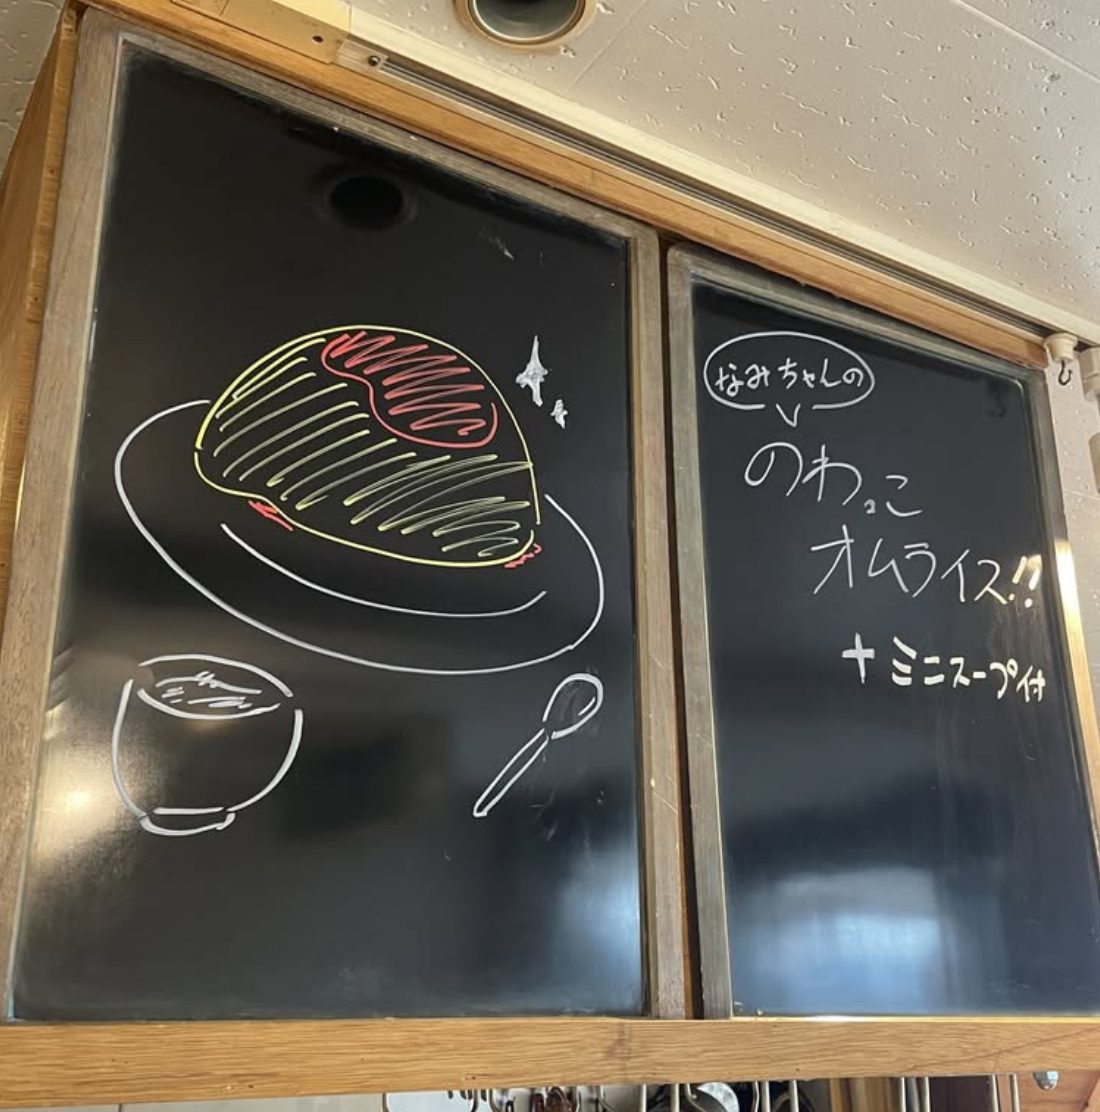 なみちゃんの
のわっこ
オムライス!!
+ミニスープ付